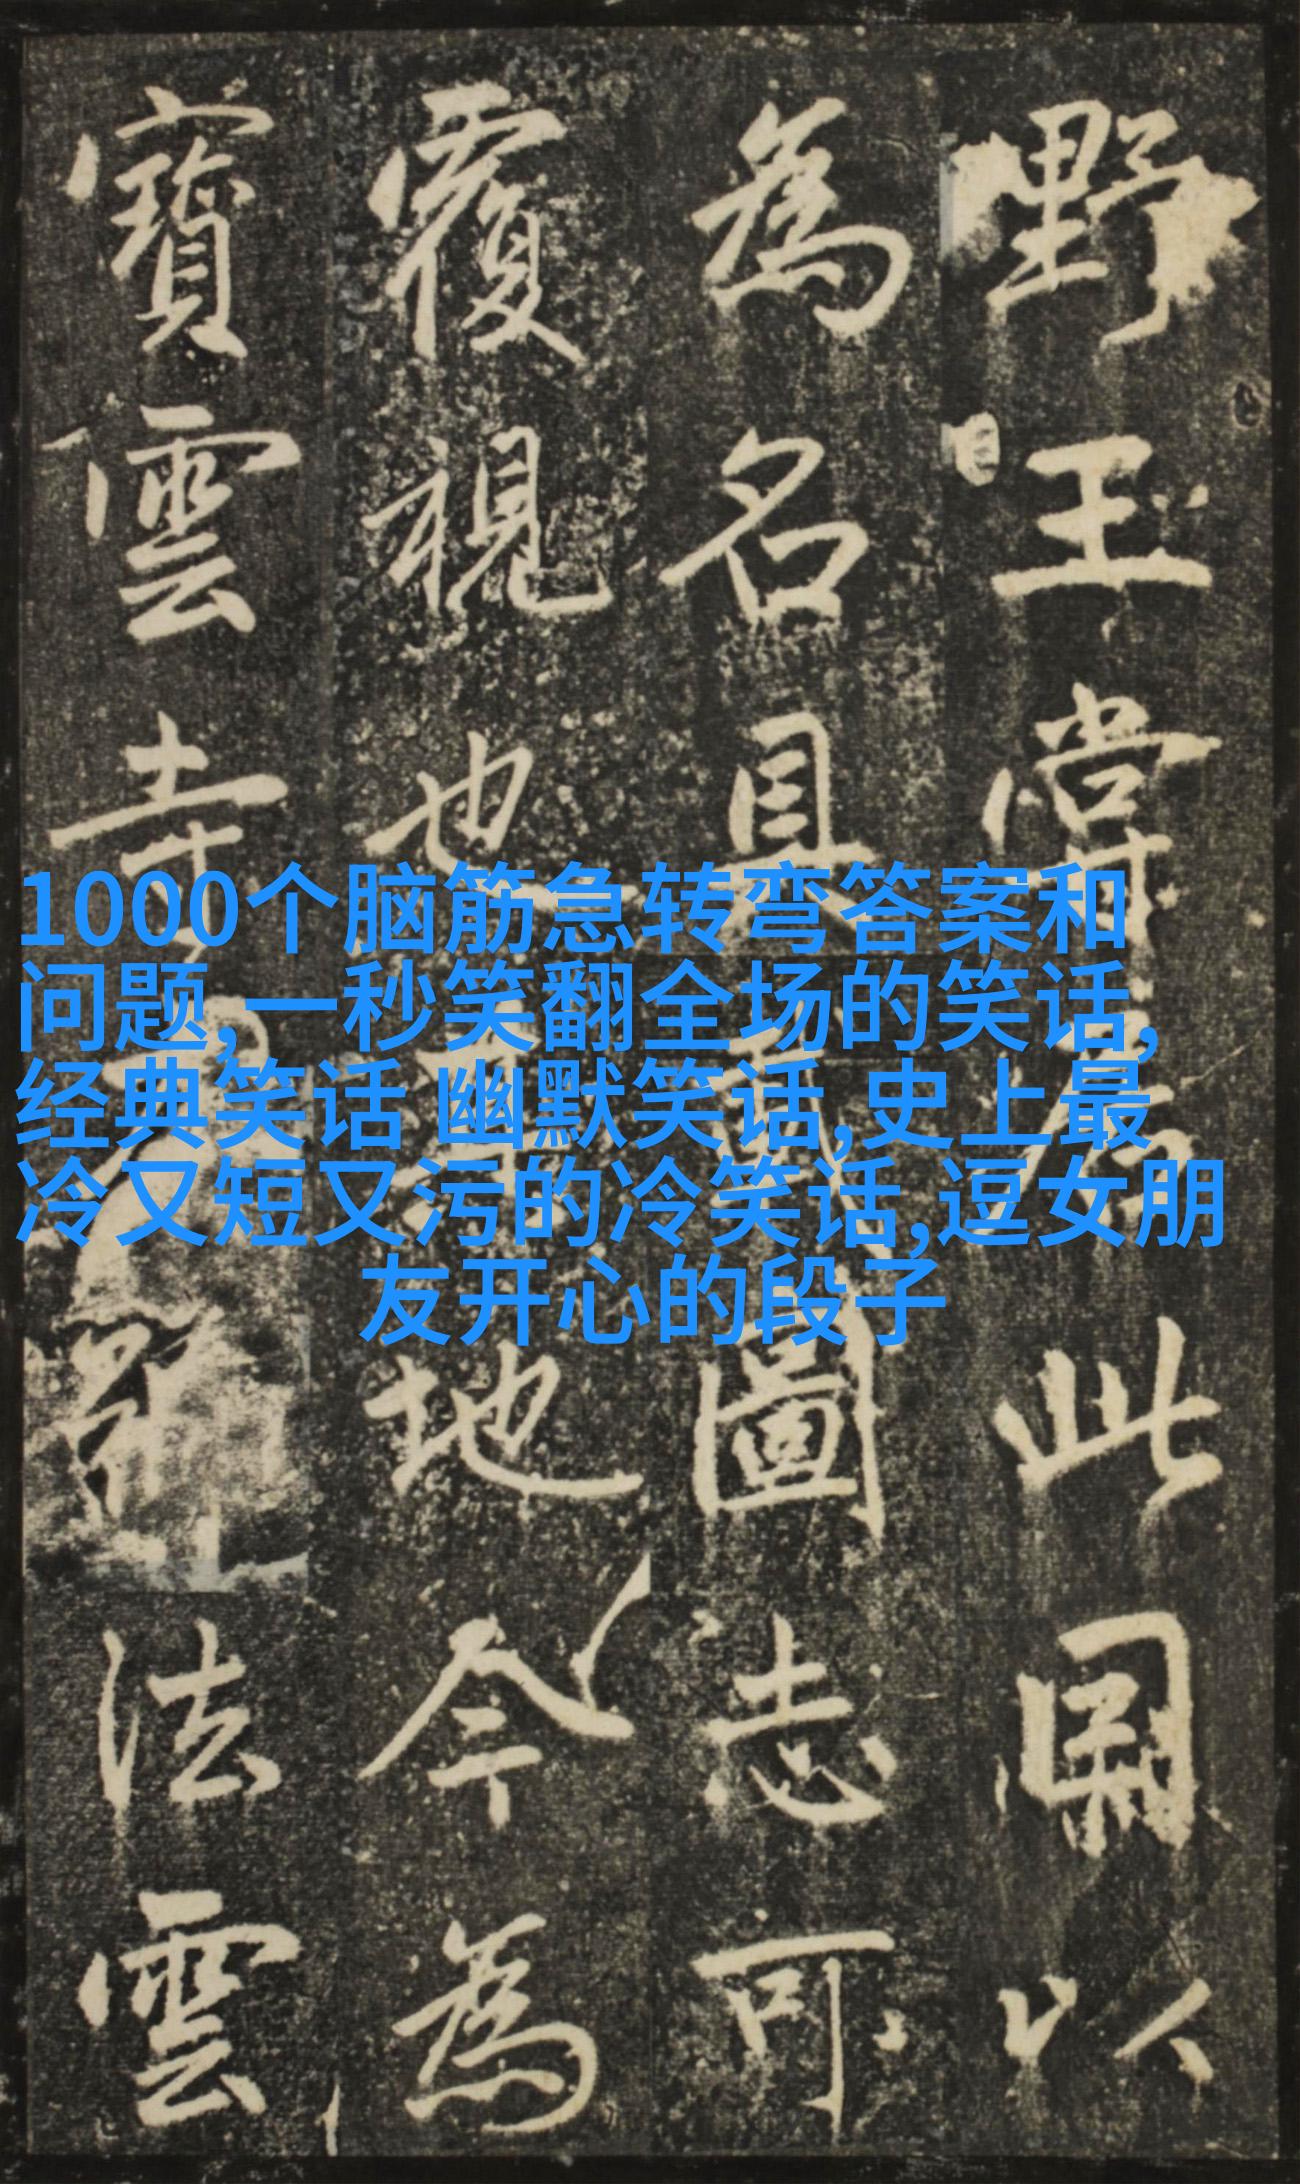 野王此以
為名具圖志可
覆視也地今為
寶雲寺法雲
1000个脑筋急转弯答案和
问题,一秒笑翻全场的笑话,
经典笑话 幽默笑话,史上最
冷又短又污的冷笑话,逗女朋
友开心的段子